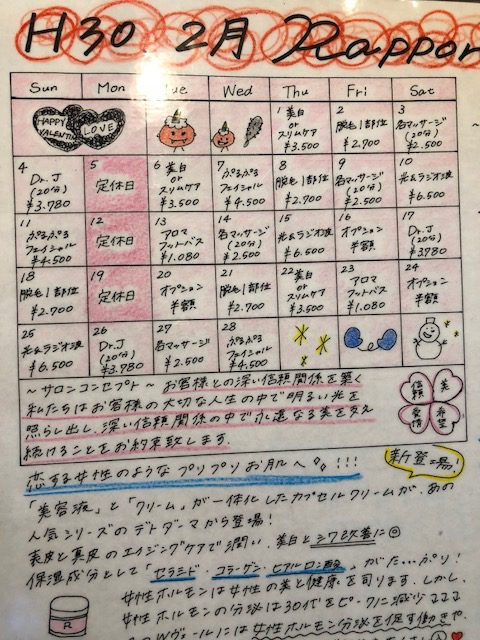 H30 2月 Rappor
Sun Mon Tue Wed Thu Fri Sat
HAPPY VALENTINE LOVE
1 美白 or スリムケア ¥3.500
2 脱毛1部位 ¥2.700
3 各マッサージ (20分) ¥2.500
4 Dr.J (20分) ¥3.780
5 定休日
6 美白 or スリムケア ¥3.500
7 ぷるぷる フェイシャル ¥4.500
8 脱毛1部位 ¥2.700
9 各マッサージ (20分) ¥2.500
10 光&ラジオ波 ¥6.500
11 ぷるぷる フェイシャル ¥4.500
12 定休日
13 アロマ フットバス ¥1.080
14 各マッサージ (20分) ¥2.500
15 光&ラジオ波 ¥6.500
16 オプション 半額
17 Dr.J (20分) ¥3.780
18 脱毛1部位 ¥2.700
19 定休日
20 オプション 半額
21 脱毛1部位 ¥2.700
22 美白 or スリムケア ¥3.500
23 アロマ フットバス ¥1.080
24 オプション 半額
25 光&ラジオ波 ¥6.500
26 Dr.J (20分) ¥3.780
27 各マッサージ (20分) ¥2.500
28 ぷるぷる フェイシャル ¥4.500
〜サロンコンセプト〜 お客様との深い信頼関係を築く
私たちはお客様の大切な人生の中で明るい光を
照らし出し、深い信頼関係の中で永遠なる美を支え
続けることをお約束致します。
信頼 美 愛情 希望
恋する女性のようなプリプリお肌へ!!!
新登場!
「美容液」と「クリーム」が一体化したカプセルクリームが、あの
人気シリーズのデトダーマから登場!
表皮と真皮のエイジングケアで潤い、美白とシワ改善に◎
保湿成分として「セラミド・コラーゲン・ヒアルロン酸」がた…ぷり!
女性ホルモンは女性の美と健康を司ります。しかし、
女性ホルモンの分泌は30代をピークに減少
ヴェールには女性ホルモン分泌を促す働きや、
R